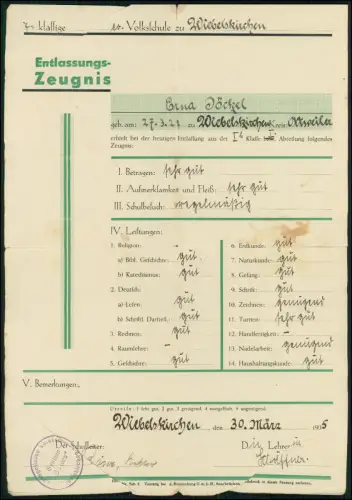 7 klassige ev. Volksschule zu Wiebelskirchen
Entlassungs-
Zeugnis
Erna Jöckel
geb. am: 27.3.21 zu Wiebelskirchen Kreis Ottweiler
erhielt bei der heutigen Entlassung aus der Klasse Abteilung folgendes
Zeugnis:
I. Betragen: sehr gut
II. Aufmerksamkeit und Fleiß: sehr gut
III. Schulbesuch: regelmäßig
IV. Leistungen:
1. Religion: –
a) Bibl. Geschichte: gut
b) Katechismus: gut
2. Deutsch:
a) Lesen: gut
b) Schriftl. Darstell.: gut
3. Rechnen: gut
4. Raumlehre: –
5. Geschichte: gut
6. Erdkunde: gut
7. Naturkunde: gut
8. Gesang: gut
9. Schrift: gut
10. Zeichnen: genügend
11. Turnen: sehr gut
12. Handfertigkeit: –
13. Nadelarbeit: genügend
14. Haushaltungskunde: gut
V. Bemerkungen:
Urteile: 1 sehr gut, 2 gut, 3 genügend, 4 mangelhaft, 5 ungenügend.
Wiebelskirchen den 30. März 1935
Der Schulleiter:
Die Lehrerin